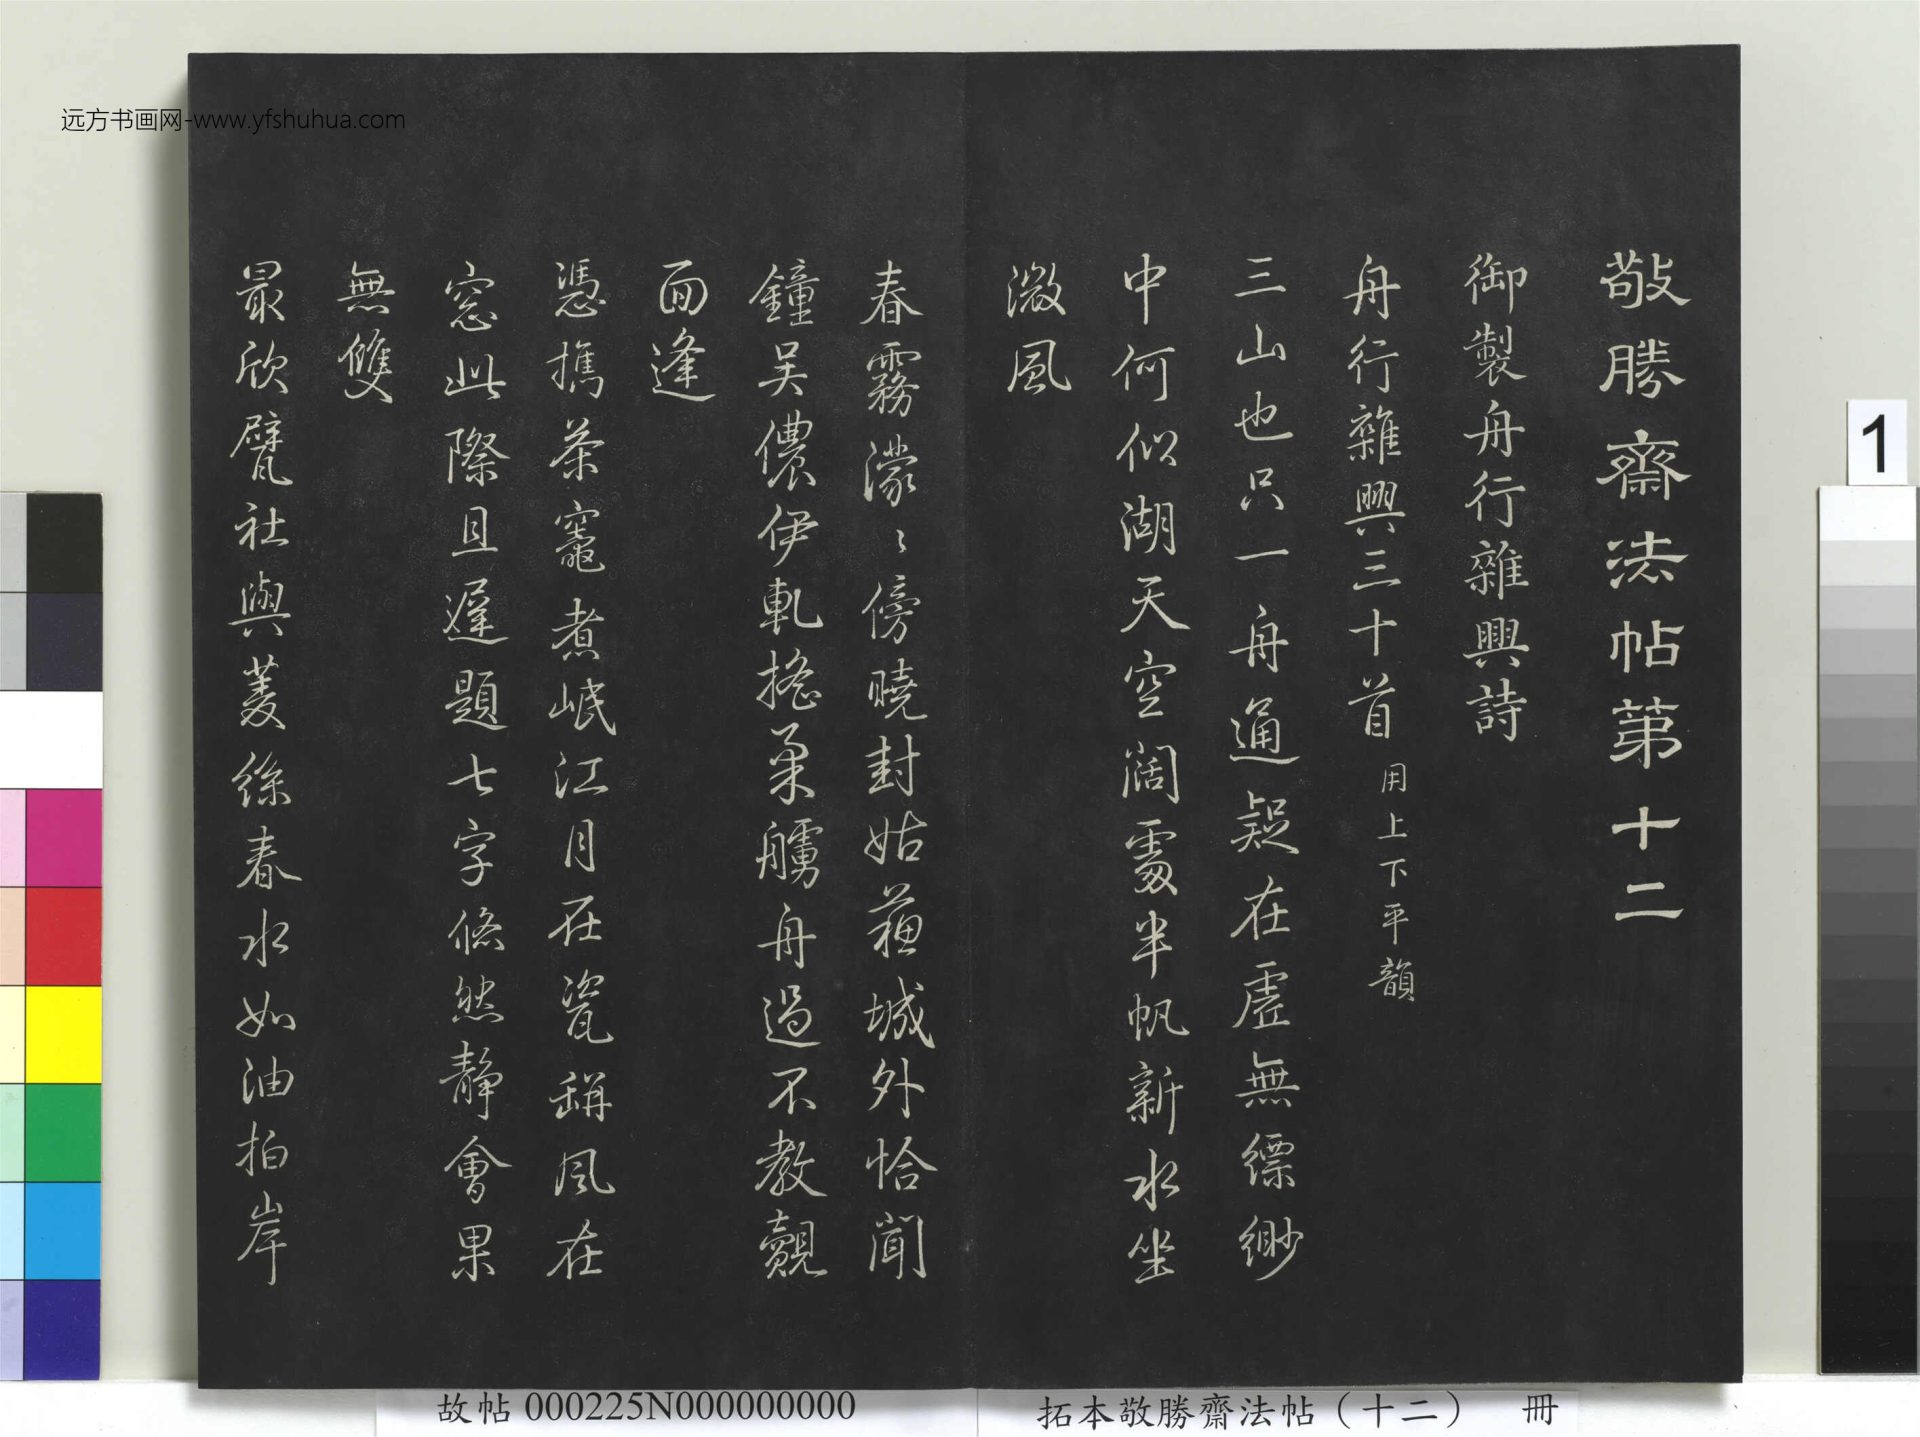 远方书画网-www.yfshuhua.com
敬勝齋法帖第十二
御製舟行雜興詩
舟行雜興三十首用上下平韻
三山也只一舟通疑在虛無縹緲
中何似湖天空闊處半帆新水坐
微風
春霧濛〻傍曉封姑蘇城外恰聞
鐘吴儂伊軋搖柔艣舟過不教覿
面逢
憑攜茶竈煮岷江月在瓷甌風在
窓此際且遲題七字翛然靜會果
無雙
最欣甓社與菱絲春水如油拍岸
1
故帖 000225N000000000
拓本敬勝齋法帖（十二） 冊